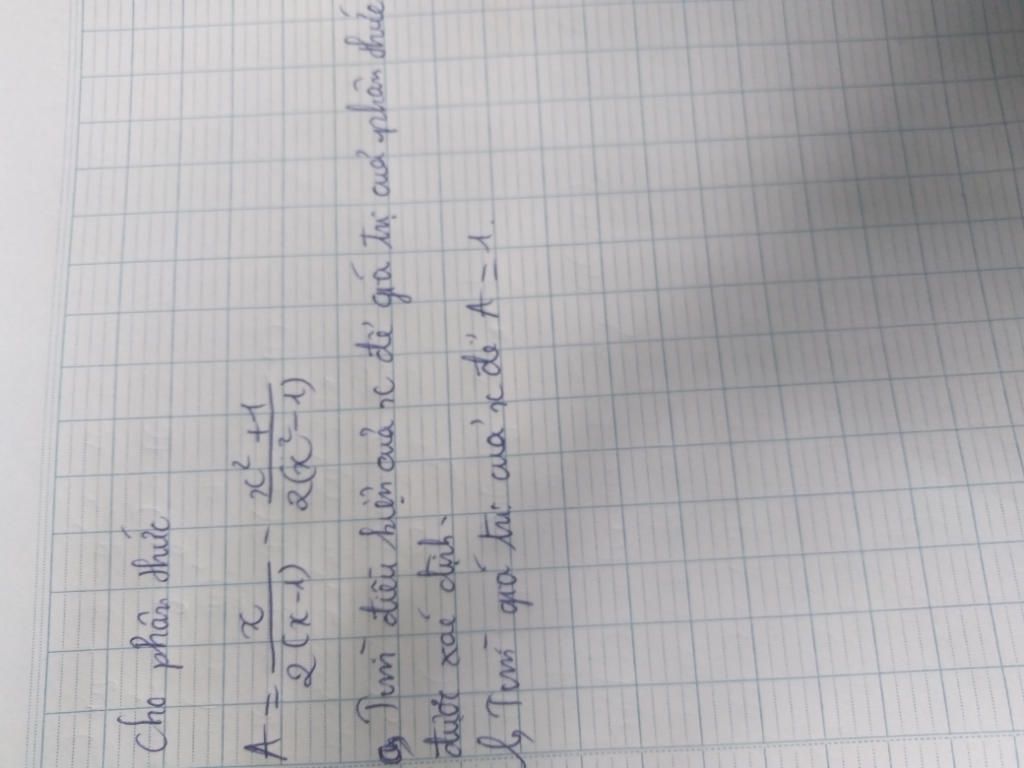 Cho phân thức
A = x / 2(x-1) - x² + 1 / 2(x² - 1)
a, Tìm điều kiện của x để giá trị của phân thức
được xác định.
b, Tìm giá trị của x để A = 1.